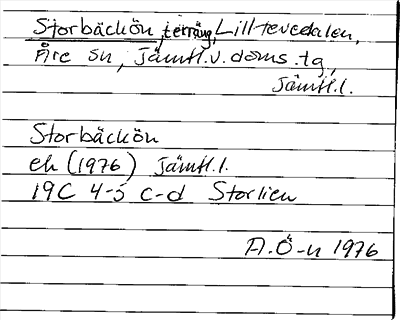 Storbäckön, terräng, Lill-tevedalen,
Åre sn, Jämtl.v. doms.tg,
Jämtl.l.
Storbäckön
ek (1976) Jämtl.l.
19C 4-5 c-d Storlien
A.Ö-n 1976